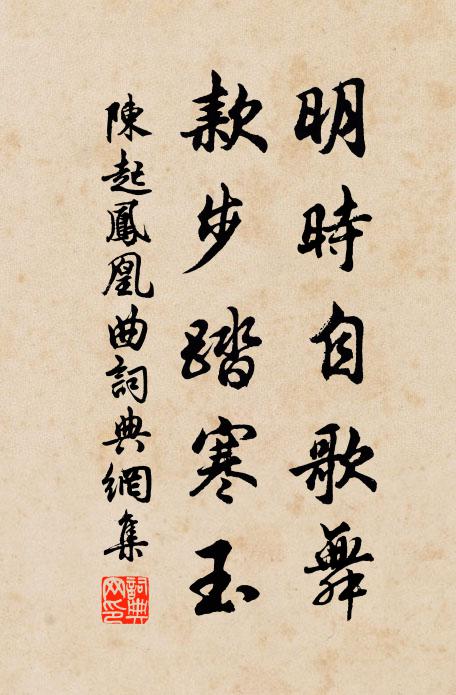 明時自歌舞
款步踏寒玉
陳起鳳凰曲詞典網集
詞典網印